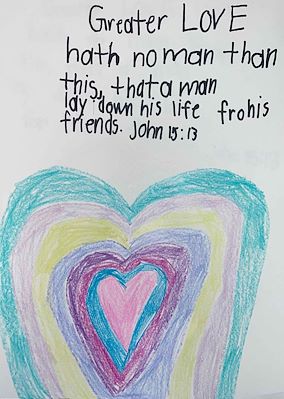 Greater LOVE
hath no man than
this, that a man
lay down his life frohis
friends. John 15:13